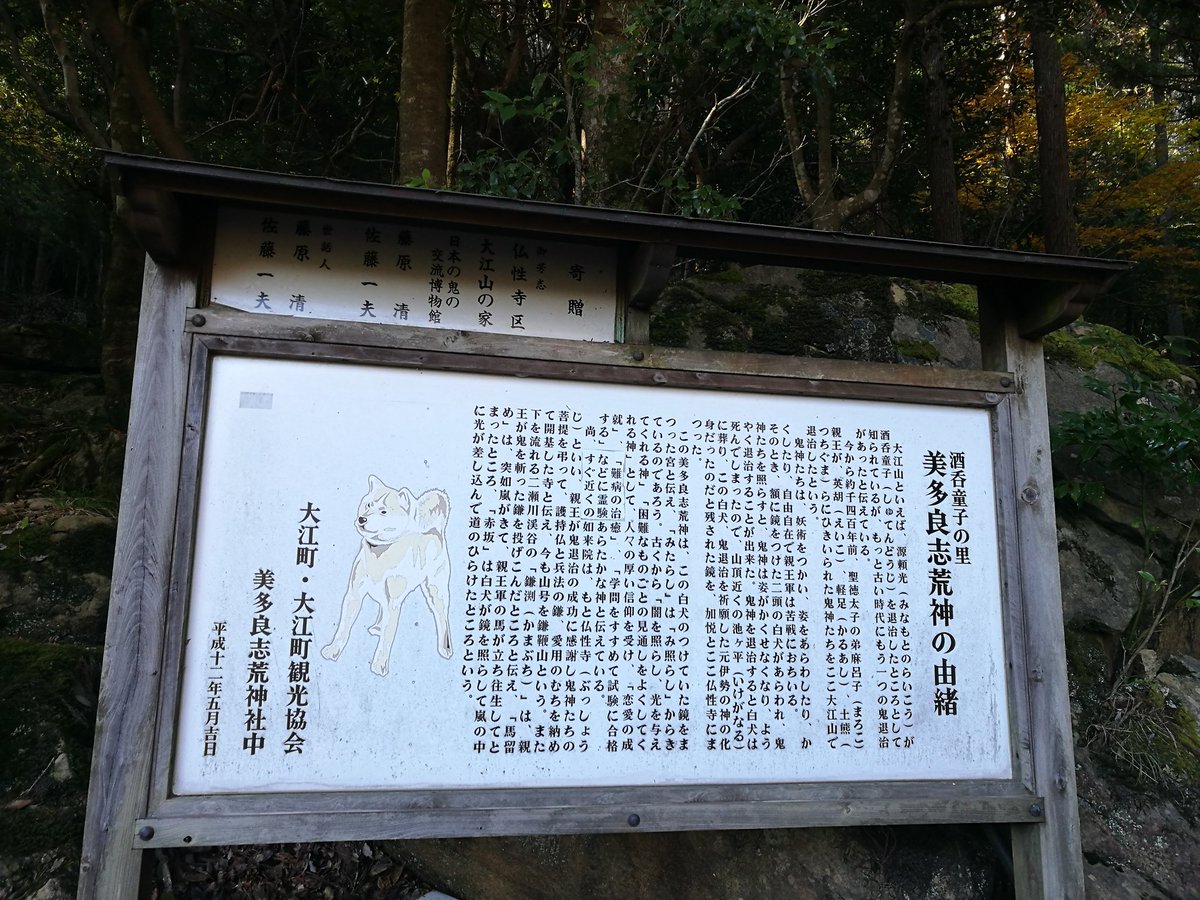 寄贈
御芳志
仏性寺区
大江山の家
日本の鬼の
交流博物館
佐藤一夫
藤原清
世話人
藤原清
佐藤一夫
酒呑童子の里
美多良志荒神の由緒
大江山といえば、源頼光（みなもとのらいこう）が
酒呑童子（しゅてんどうじ）を退治したところとして
知られているが、もっと古い時代にもう一つの鬼退治
があったと伝えている。
今から約千四百年前、聖徳太子の弟麻呂子（まろこ）
親王が、英胡（えいこ）、軽足（かるあし）、土熊（
つちぐま）らにひきいられた鬼神たちをここ大江山で
退治したという。
鬼神たちは、妖術をつかい、姿をあらわしたり、か
くしたり、自由自在で親王軍は苦戦におちいる。
そのとき、額に鏡をつけた二頭の白犬があらわれ、鬼
神たちを照らすと、鬼神は姿がかくせなくなり、よう
やく退治することが出来た。鬼神を退治すると白犬は
死んでしまったので、山頂近くの池ヶ平（いけがなる）
に葬り、この白犬、鬼退治を祈願した元伊勢の神の化
身だったのだと残された鏡を、加悦とここ仏性寺にま
つった。
この美多良志荒神は、この白犬のつけていた鏡をま
つった宮と伝え、「みたらし」は「み照らし」からき
ているのであろう。古くから「闇を照らし、光を与え
てくれる神」「困難なものごとの見通しをよくしてく
れる神」として、人々の厚い信仰を受け、「恋愛の成
就」、「難病の治癒」、「学問をすすめて試験に合格
する」などに霊験あらたかな神と伝えている。
尚、すぐ近くの如来院は、もと仏性寺（ぶっしょう
じ）といい、親王が鬼退治の成功に感謝し鬼神たちの
菩提を弔って、護持仏と兵法の鎌、愛用のむちを納め
て開基した寺と伝え、今も山号を鎌鞭山という。また
下を流れる二瀬川渓谷の「鎌渕（かまぶち）」は、親
王が鬼を斬った鎌を投げこんだところと伝え、「馬留
め」は、突如嵐がきて、親王軍の馬が立ち往生してと
まったところ。「赤坂」は白犬が鏡を照らして嵐の中
に光が差し込んで道のひらけたところという。
大江町・大江町観光協会
美多良志荒神社中
平成十二年五月吉日